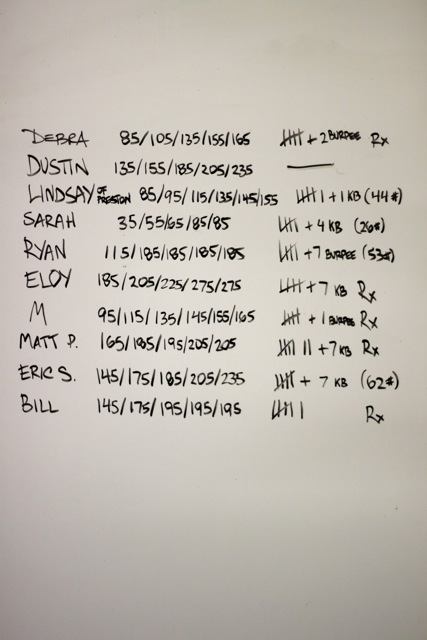 DEBRA 85/105/135/155/165 卌 + 2 BURPEE Rx
DUSTIN 135/155/185/205/235 —
LINDSAY OF PRESTON 85/95/115/135/145/155 卌 I + 1 KB (44#)
SARAH 35/55/65/85/85 + 4 KB (26#)
RYAN 115/185/185/185/185 + 7 BURPEE (53#)
ELOY 185/205/225/275/275 卌 + 7 KB Rx
M 95/115/135/145/155/165 卌 + 1 BURPEE Rx
MATT P. 165/185/195/205/205 卌 II + 7 KB Rx
ERIC S. 145/175/185/205/235 卌 + 7 KB (62#)
BILL 145/175/195/195/195 卌 I Rx